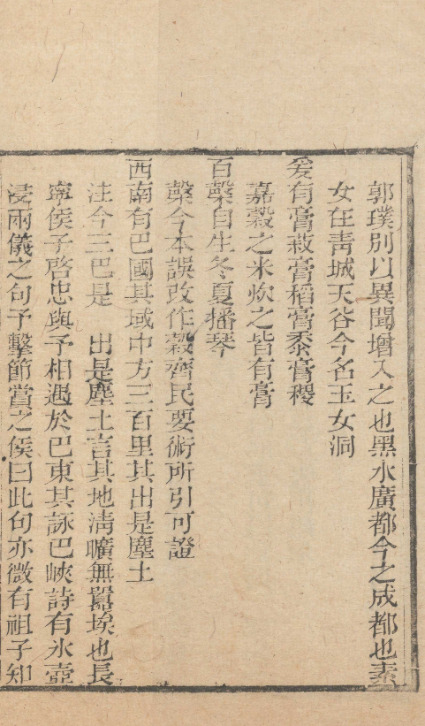 郭璞別以異聞增入之也黑水廣都今之成都也素
女在靑城天谷今名玉女洞
爰有膏菽膏稻膏黍膏稷
嘉穀之米炊之皆有膏
百榖自生冬夏播琴
榖今本誤改作穀齊民要術所引可證
西南有巴國其域中方三百里其出是塵土
注今三巴是　出是塵土言其地淸曠無囂埃也長
寧侯子啓忠與予相遇於巴東其詠巴峽詩有氷壺
浸兩儀之句予擊節賞之侯曰此句亦微有祖子知